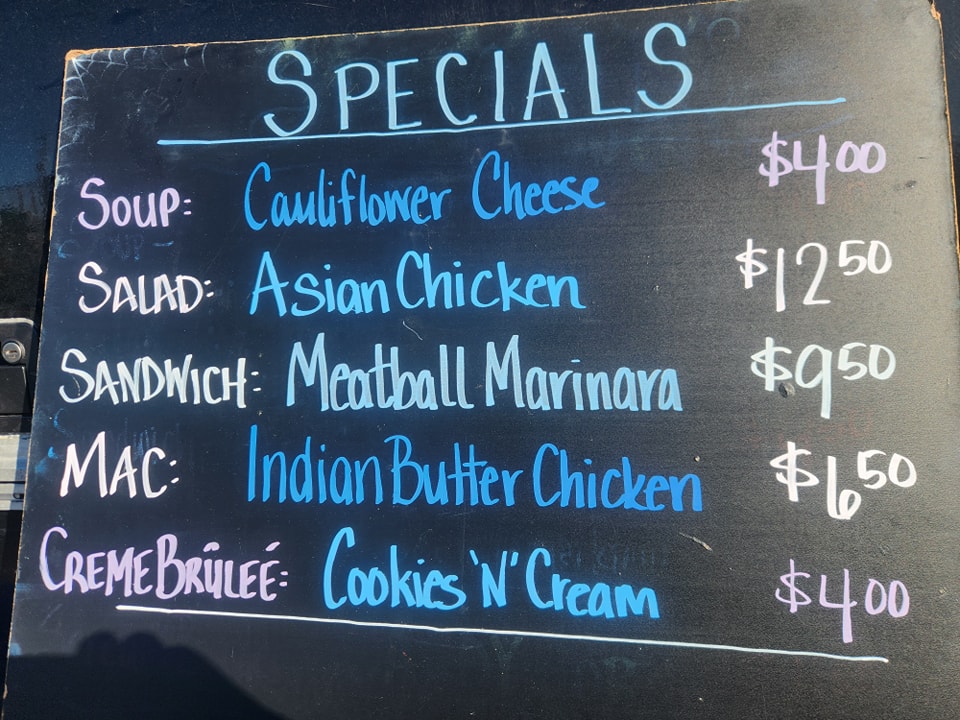 SPECIALS
SOUP: Cauliflower Cheese $4.00
SALAD: Asian Chicken $12.50
SANDWICH: Meatball Marinara $9.50
MAC: Indian Butter Chicken $6.50
CREME BRÛLEÉ: Cookies 'N' Cream $4.00